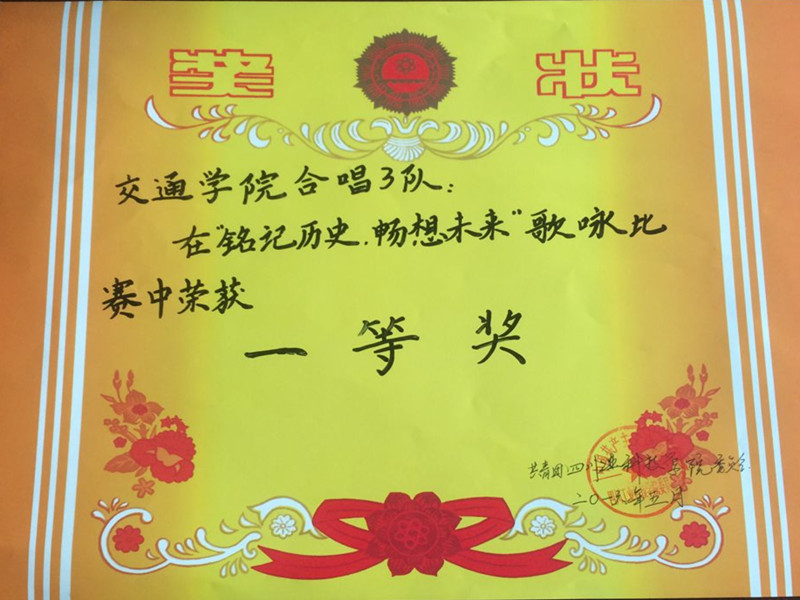 奖状
交通学院合唱3队：
在"铭记历史,畅想未来"歌咏比
赛中荣获
一等奖
共青团四川 科技学院委员会
二〇一六年五月